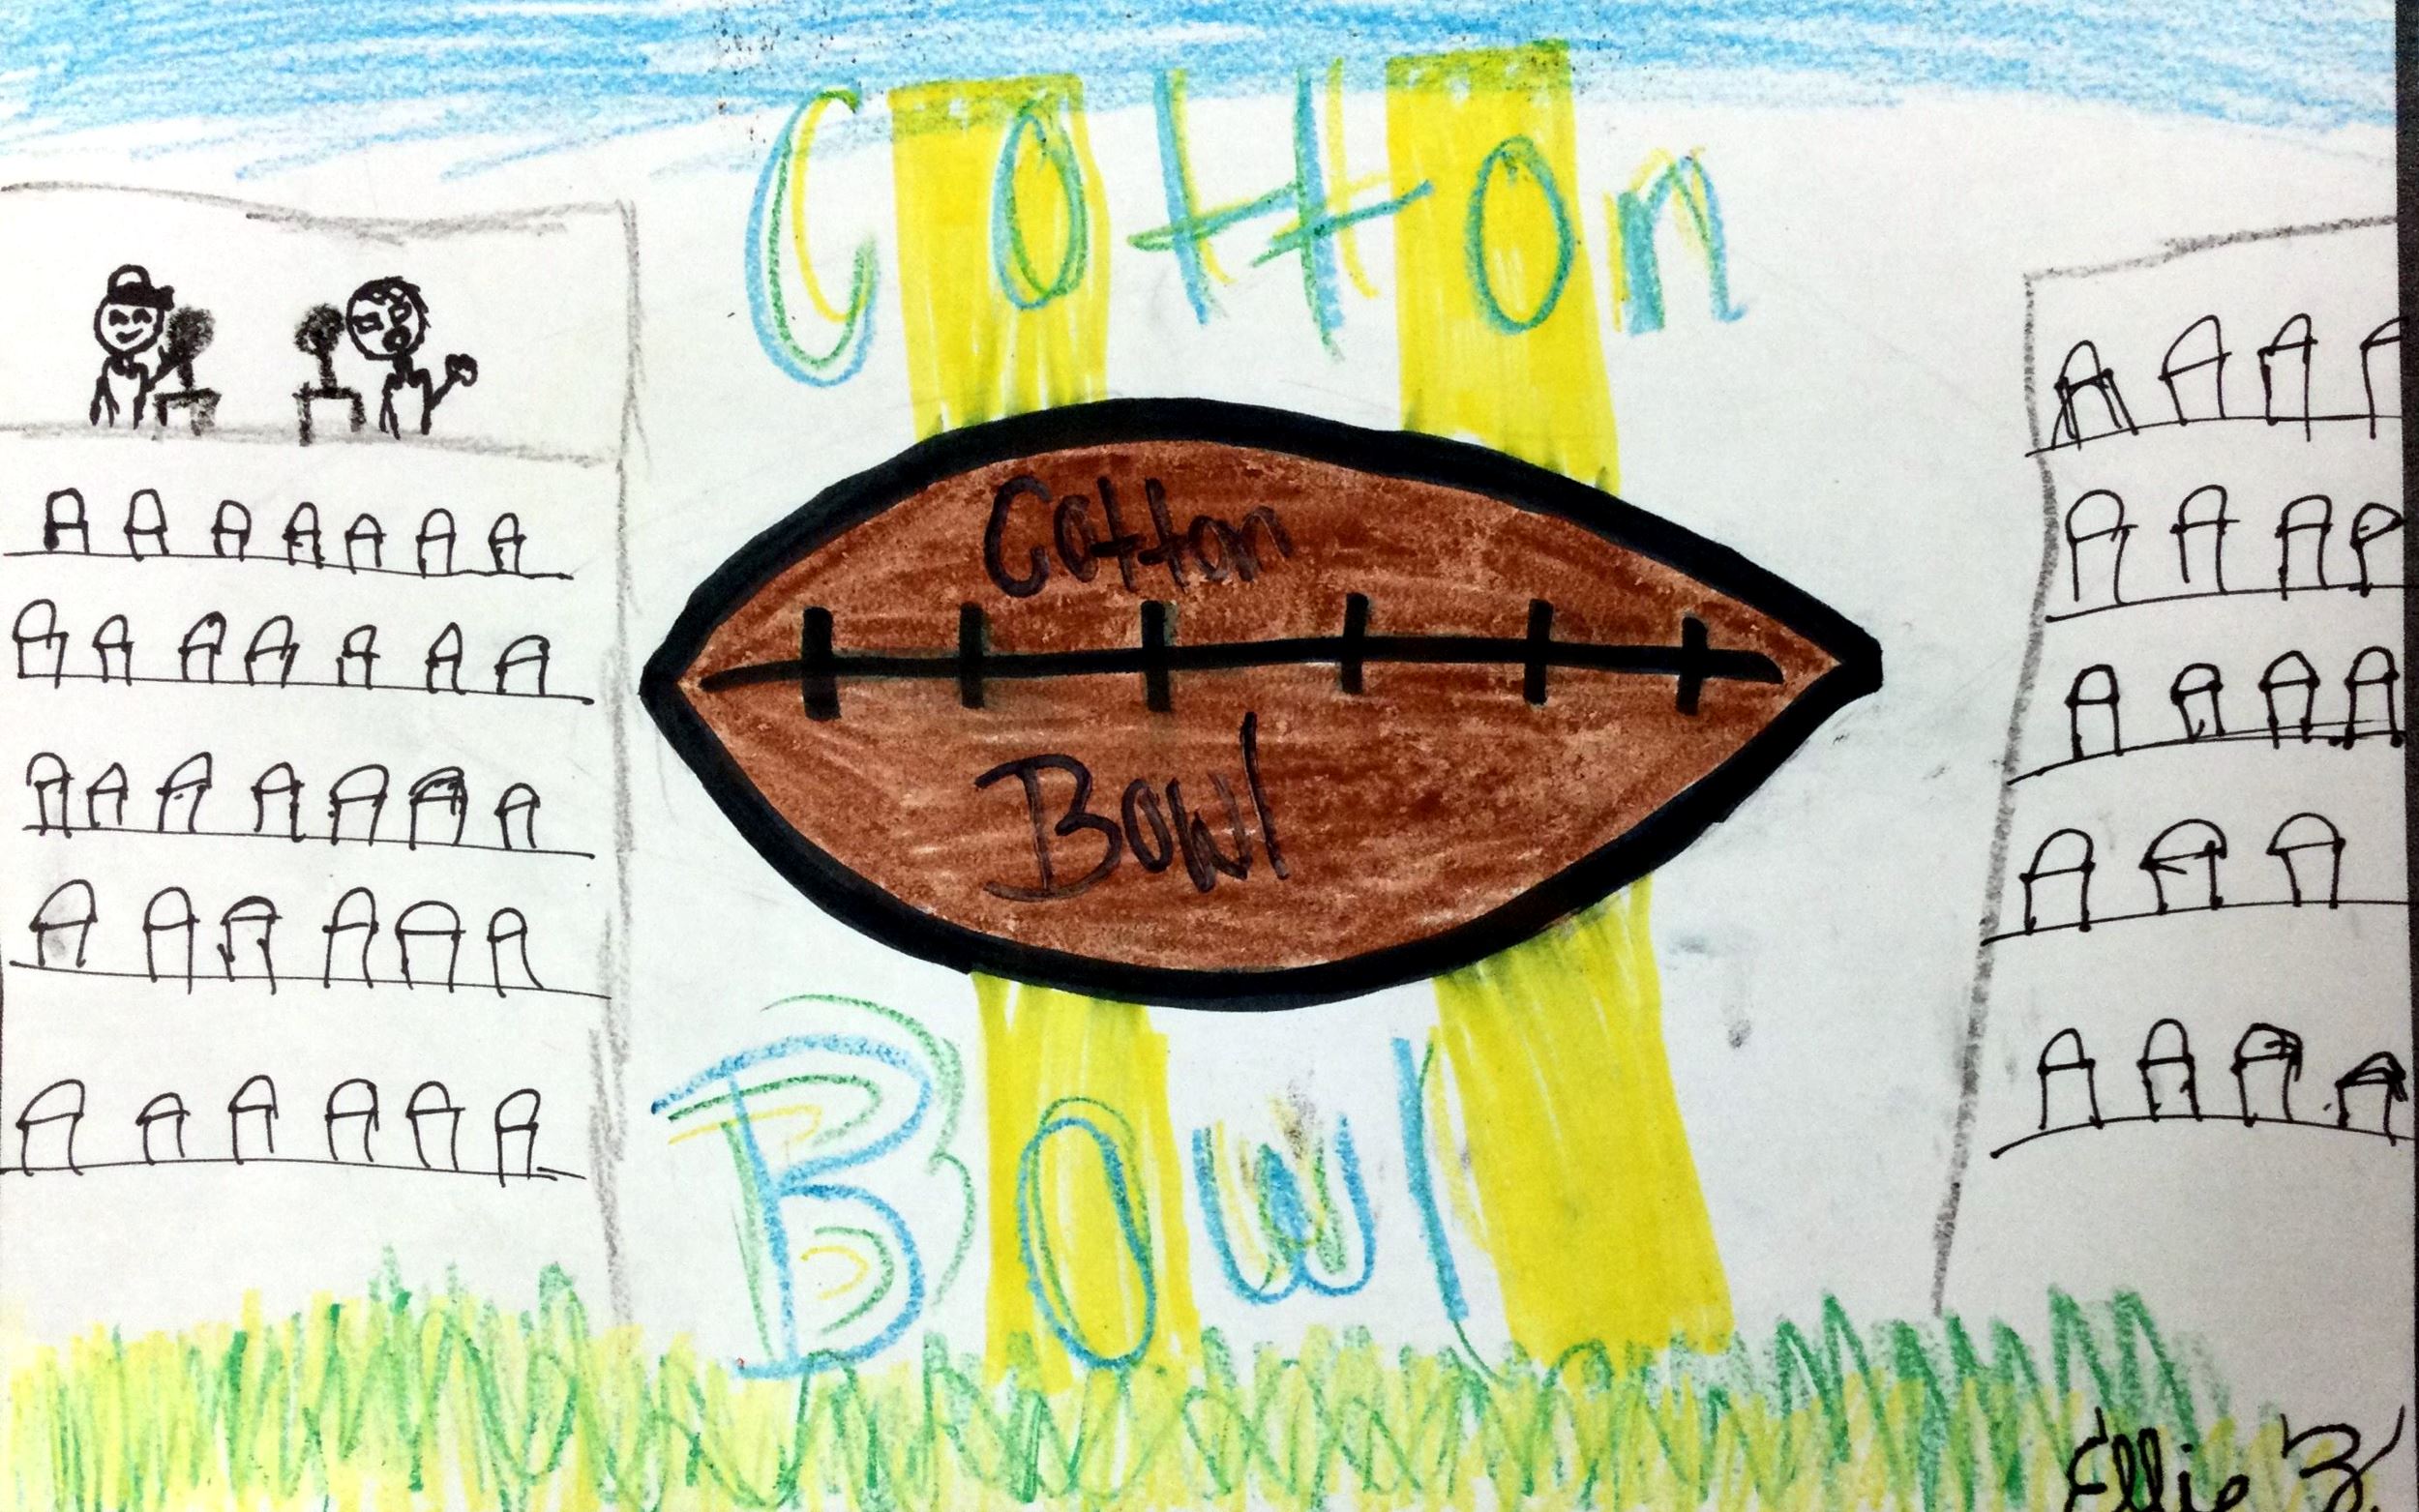 Cotton
Cotton
Bowl
Bowl
Ellie Z.